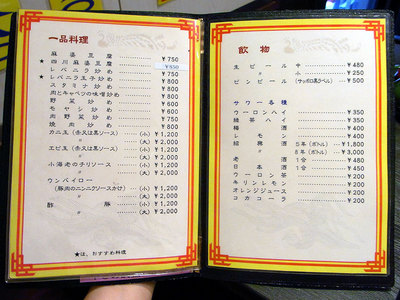 一品料理
麻婆豆腐 ¥750
★四川麻婆豆腐 ¥850
レバニラ炒め ¥750
★レバニラ玉子炒め ¥800
スタミナ炒め ¥800
肉とキャベツの味噌炒め ¥800
野菜炒め ¥700
モヤシ炒め ¥700
肉野菜炒め ¥750
焼肉炒め ¥800
カニ玉(赤又は黒ソース) (小) ¥1,200
〃 (大) ¥2,000
エビ玉(赤又は黒ソース) (小) ¥1,200
〃 (大) ¥2,000
小海老のチリソース (小) ¥1,200
〃 (大) ¥2,000
ウンパイロー
(豚肉のニンニクソースかけ) (小) ¥1,200
〃 (大) ¥2,000
酢豚 (小) ¥1,200
〃 (大) ¥2,000
★は、おすすめ料理
飲物
生ビール 中 ¥480
〃 小 ¥250
ビンビール (サッポロ黒ラベル) ¥500
サワー各種
ウーロンハイ ¥400
緑茶ハイ ¥400
梅酒 ¥400
レモン ¥400
紹興酒 5年(ボトル) ¥1,800
〃 8年(ボトル) ¥3,000
老酒 1合 ¥480
日本酒 1合 ¥450
ウーロン茶 ¥200
キリンレモン ¥200
オレンジジュース ¥200
コカコーラ ¥200